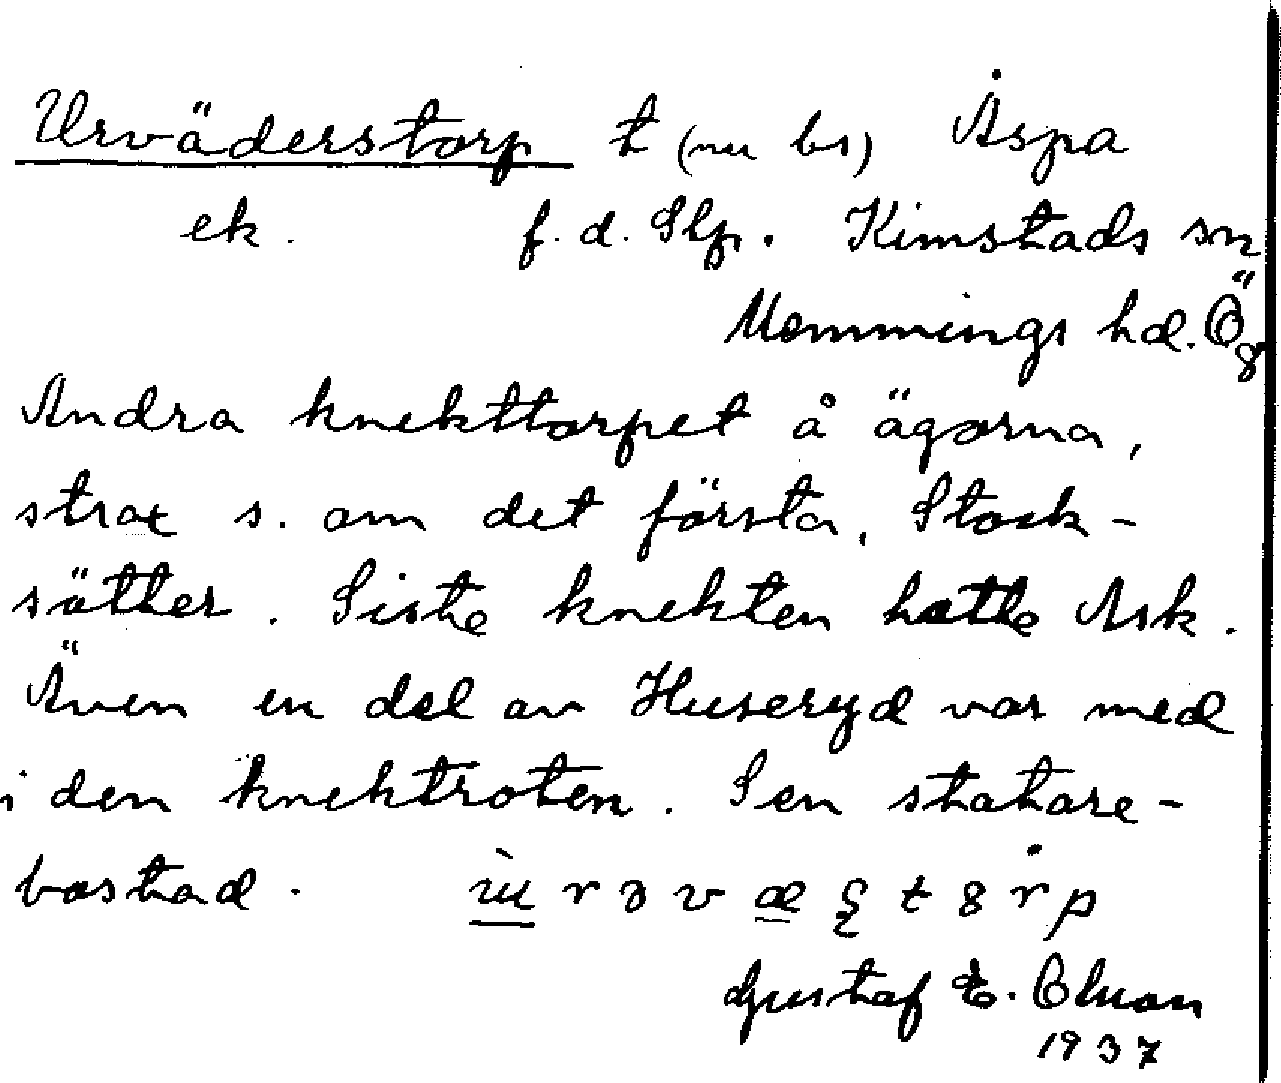 Urväderstorp t (nu bs) Åspa
ek. f.d. Slp. Kimstads sn
Memmings hd. Ög
Andra knekttorpet å ägorna,
strax s. om det första, Stock-
sätter. Siste knekten hette Ask.
Även en del av Huseryd var med
i den knektroten. Sen statare-
bostad.
Gustaf E. Olsson
1937